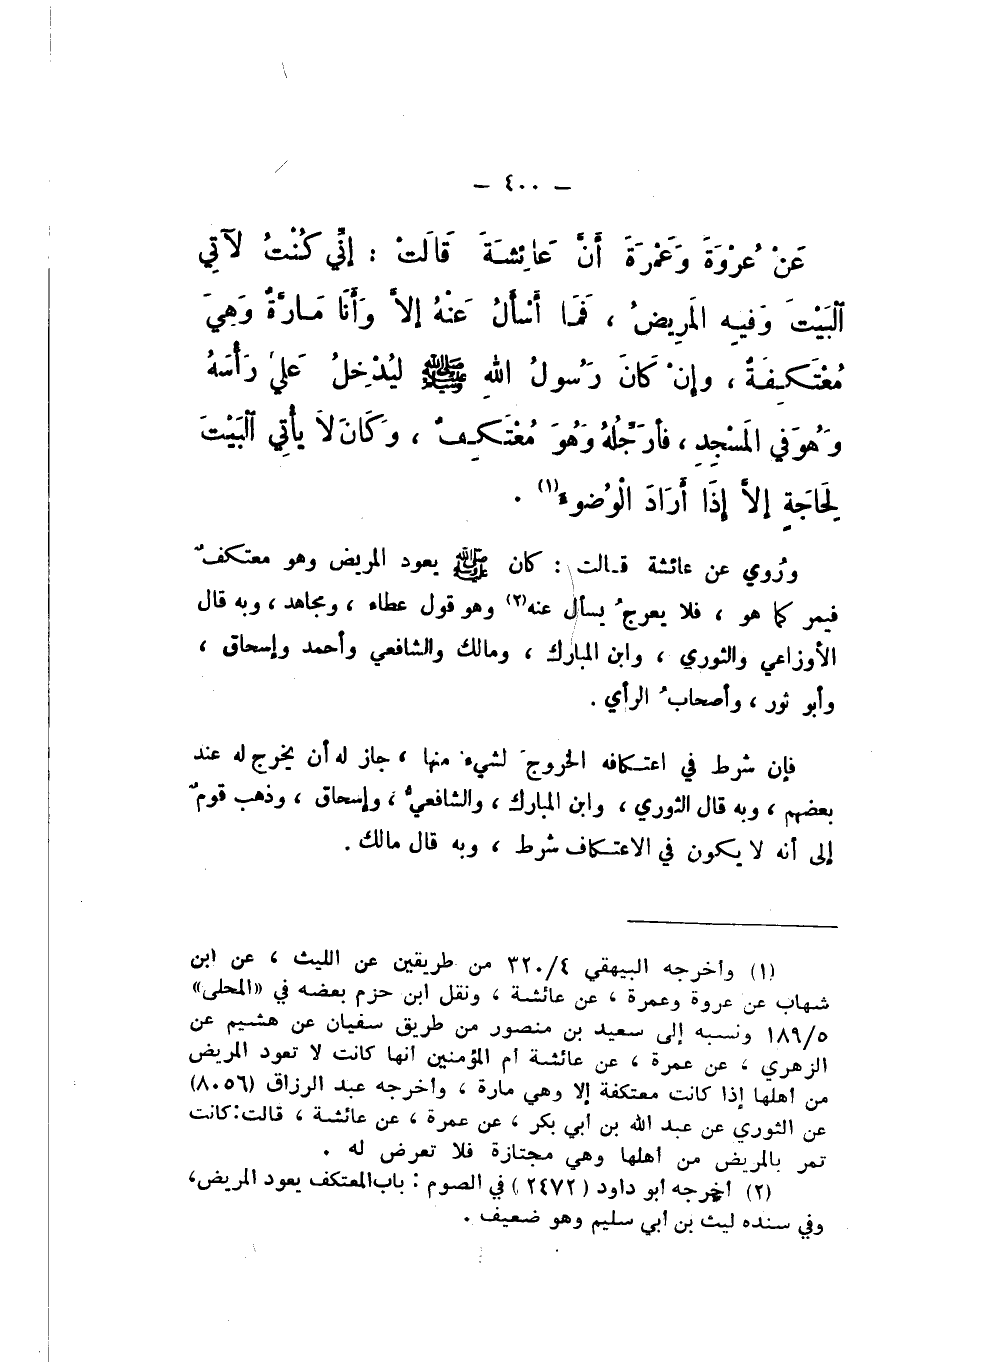 — ٤٠٠ —
عَنْ عُرْوَةَ وَعَمْرَةَ أَنَّ عَائِشَةَ قَالَتْ : إِنِّي كُنْتُ لآتِي
اَلْبَيْتَ وَفِيهِ المَرِيضُ ، فَمَا أَسْأَلُ عَنْهُ إلاَّ وَأَنَا مَارَّةٌ وَهِيَ
مُعْتَكِفَةٌ ، وإنْ كَانَ رَسُولُ اللهِ ﷺ لَيُدْخِلُ عَلَيَّ رَأْسَهُ
وَهُوَ فِي المَسْجِدِ ، فَأُرَجِّلُهُ وَهُوَ مُعْتَكِفٌ ، وَكَانَ لاَ يَأْتِي اَلْبَيْتَ
لِحَاجَةٍ إلاَّ إذَا أَرَادَ الْوُضوءَ(١) .
ورُوي عن عائشة قالت : كان ﷺ يعود المريض وهو معتكفٌ
فيمر كما هو ، فلا يعرجُ يسأل عنه(٢) وهو قول عطاء ، ومجاهد ، وبه قال
الأوزاعي والثوري ، وابن المبارك ، ومالك والشافعي وأحمد وإسحاق ،
وأبو ثور ، وأصحابُ الرأي .
فإن شرط في اعتكافه الخروجَ لشيء منها ، جاز له أن يخرج له عند
بعضهم ، وبه قال الثوري ، وابن المبارك ، والشافعيُّ ، وإسحاق ، وذهب قومٌ
إلى أنه لا يكون في الاعتكاف شرط ، وبه قال مالك .
(١) وأخرجه البيهقي ٣٢٠/٤ من طريقين عن الليث ، عن ابن
شهاب عن عروة وعمرة ، عن عائشة ، ونقل ابن حزم بعضه في «المحلى»
١٨٩/٥ ونسبه إلى سعيد بن منصور من طريق سفيان عن هشيم عن
الزهري ، عن عمرة ، عن عائشة أم المؤمنين أنها كانت لا تعود المريض
من أهلها إذا كانت معتكفة إلا وهي مارة ، وأخرجه عبد الرزاق (٨٠٥٦)
عن الثوري عن عبد الله بن أبي بكر ، عن عمرة ، عن عائشة ، قالت:كانت
تمر بالمريض من أهلها وهي مجتازة فلا تعرض له .
(٢) أخرجه أبو داود (٢٤٧٢) في الصوم : باب المعتكف يعود المريض،
وفي سنده ليث بن أبي سليم وهو ضعيف .